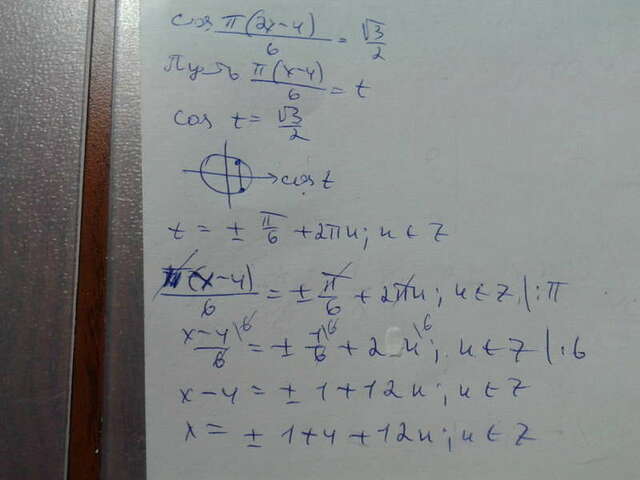 cos π(2x-4)/6 = √3/2
Пусть π(x-4)/6 = t
cos t = √3/2
cos t
t = ± π/6 + 2πn; n ∈ Z
π(x-4)/6 = ± π/6 + 2πn; n ∈ Z |:π
x-4/6 \6 = ± 1/6 \6 + 2n \6; n ∈ Z |:6
x-4 = ± 1 + 12n; n ∈ Z
x = ± 1+4 + 12n; n ∈ Z